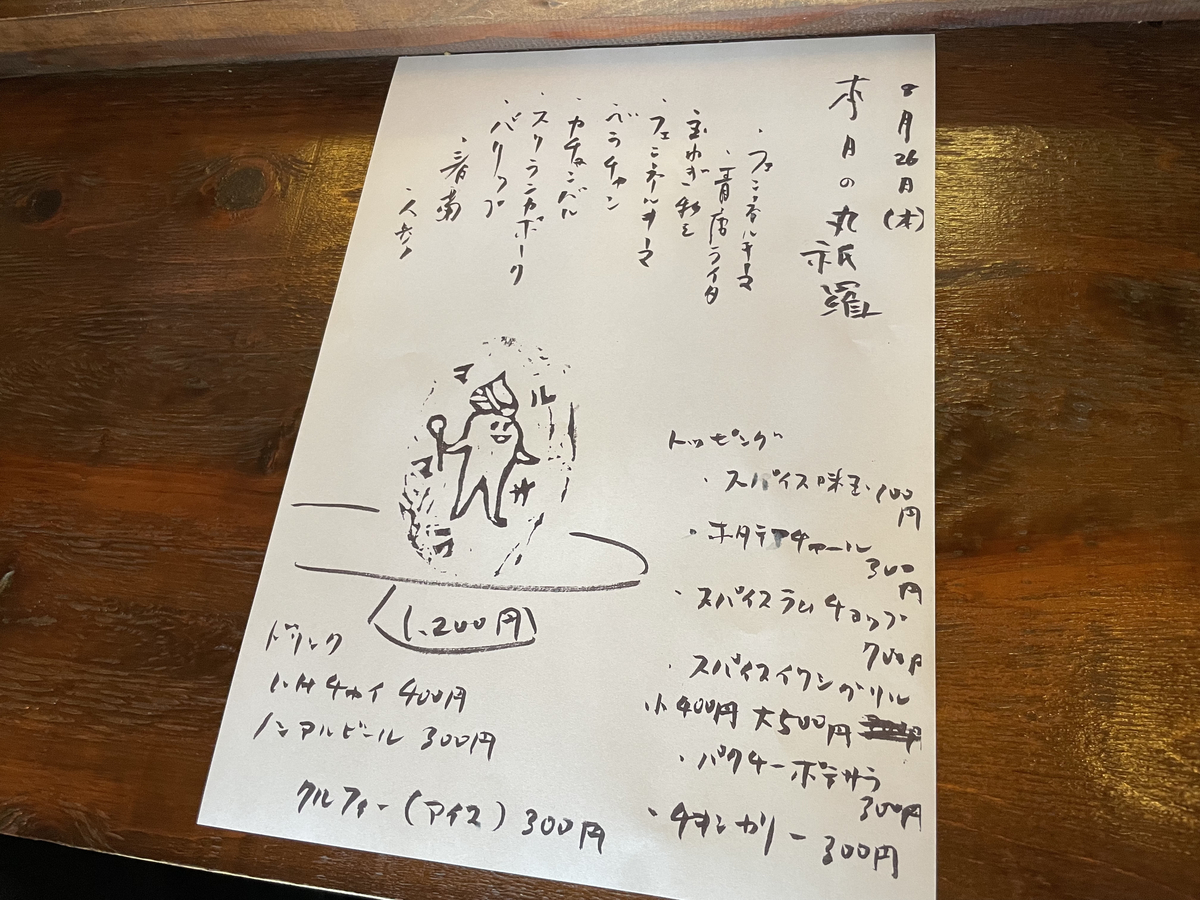 8月26日(木)
本日の丸祇羅
・フェンネルキーマ
・青唐ライタ
・玉ねぎ
・フェンネルキーマ
・ベラチャン
・カチュンバル
・スリランカポーク
・パリップ
・春菊
・人参
マ
ル
トッピング
・スパイス味玉 100円
・ホタテアチャール
300円
・スパイスラムチョップ
700円
・スパイスイワシグリル
小400円 大500円
・パクチーポテサラ
300円
・チキンカリー 300円
1,200円
ドリンク
チャイ 400円
ノンアルビール 300円
クルフィー(アイス) 300円